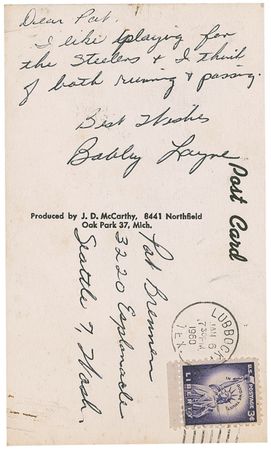 Dear Pat.
I like playing for
the Steelers & I think
of both running & passing.
Best Wishes
Bobby Layne
Post Card
Produced by J. D. McCarthy, 8441 Northfield
Oak Park 37, Mich.
Pat Brennen
3220 Esplanade
Seattle 7, Wash.
LUBBOCK
JAN 6
730 PM
1960
TEX.
U.S. POSTAGE
3¢
LIBERTY